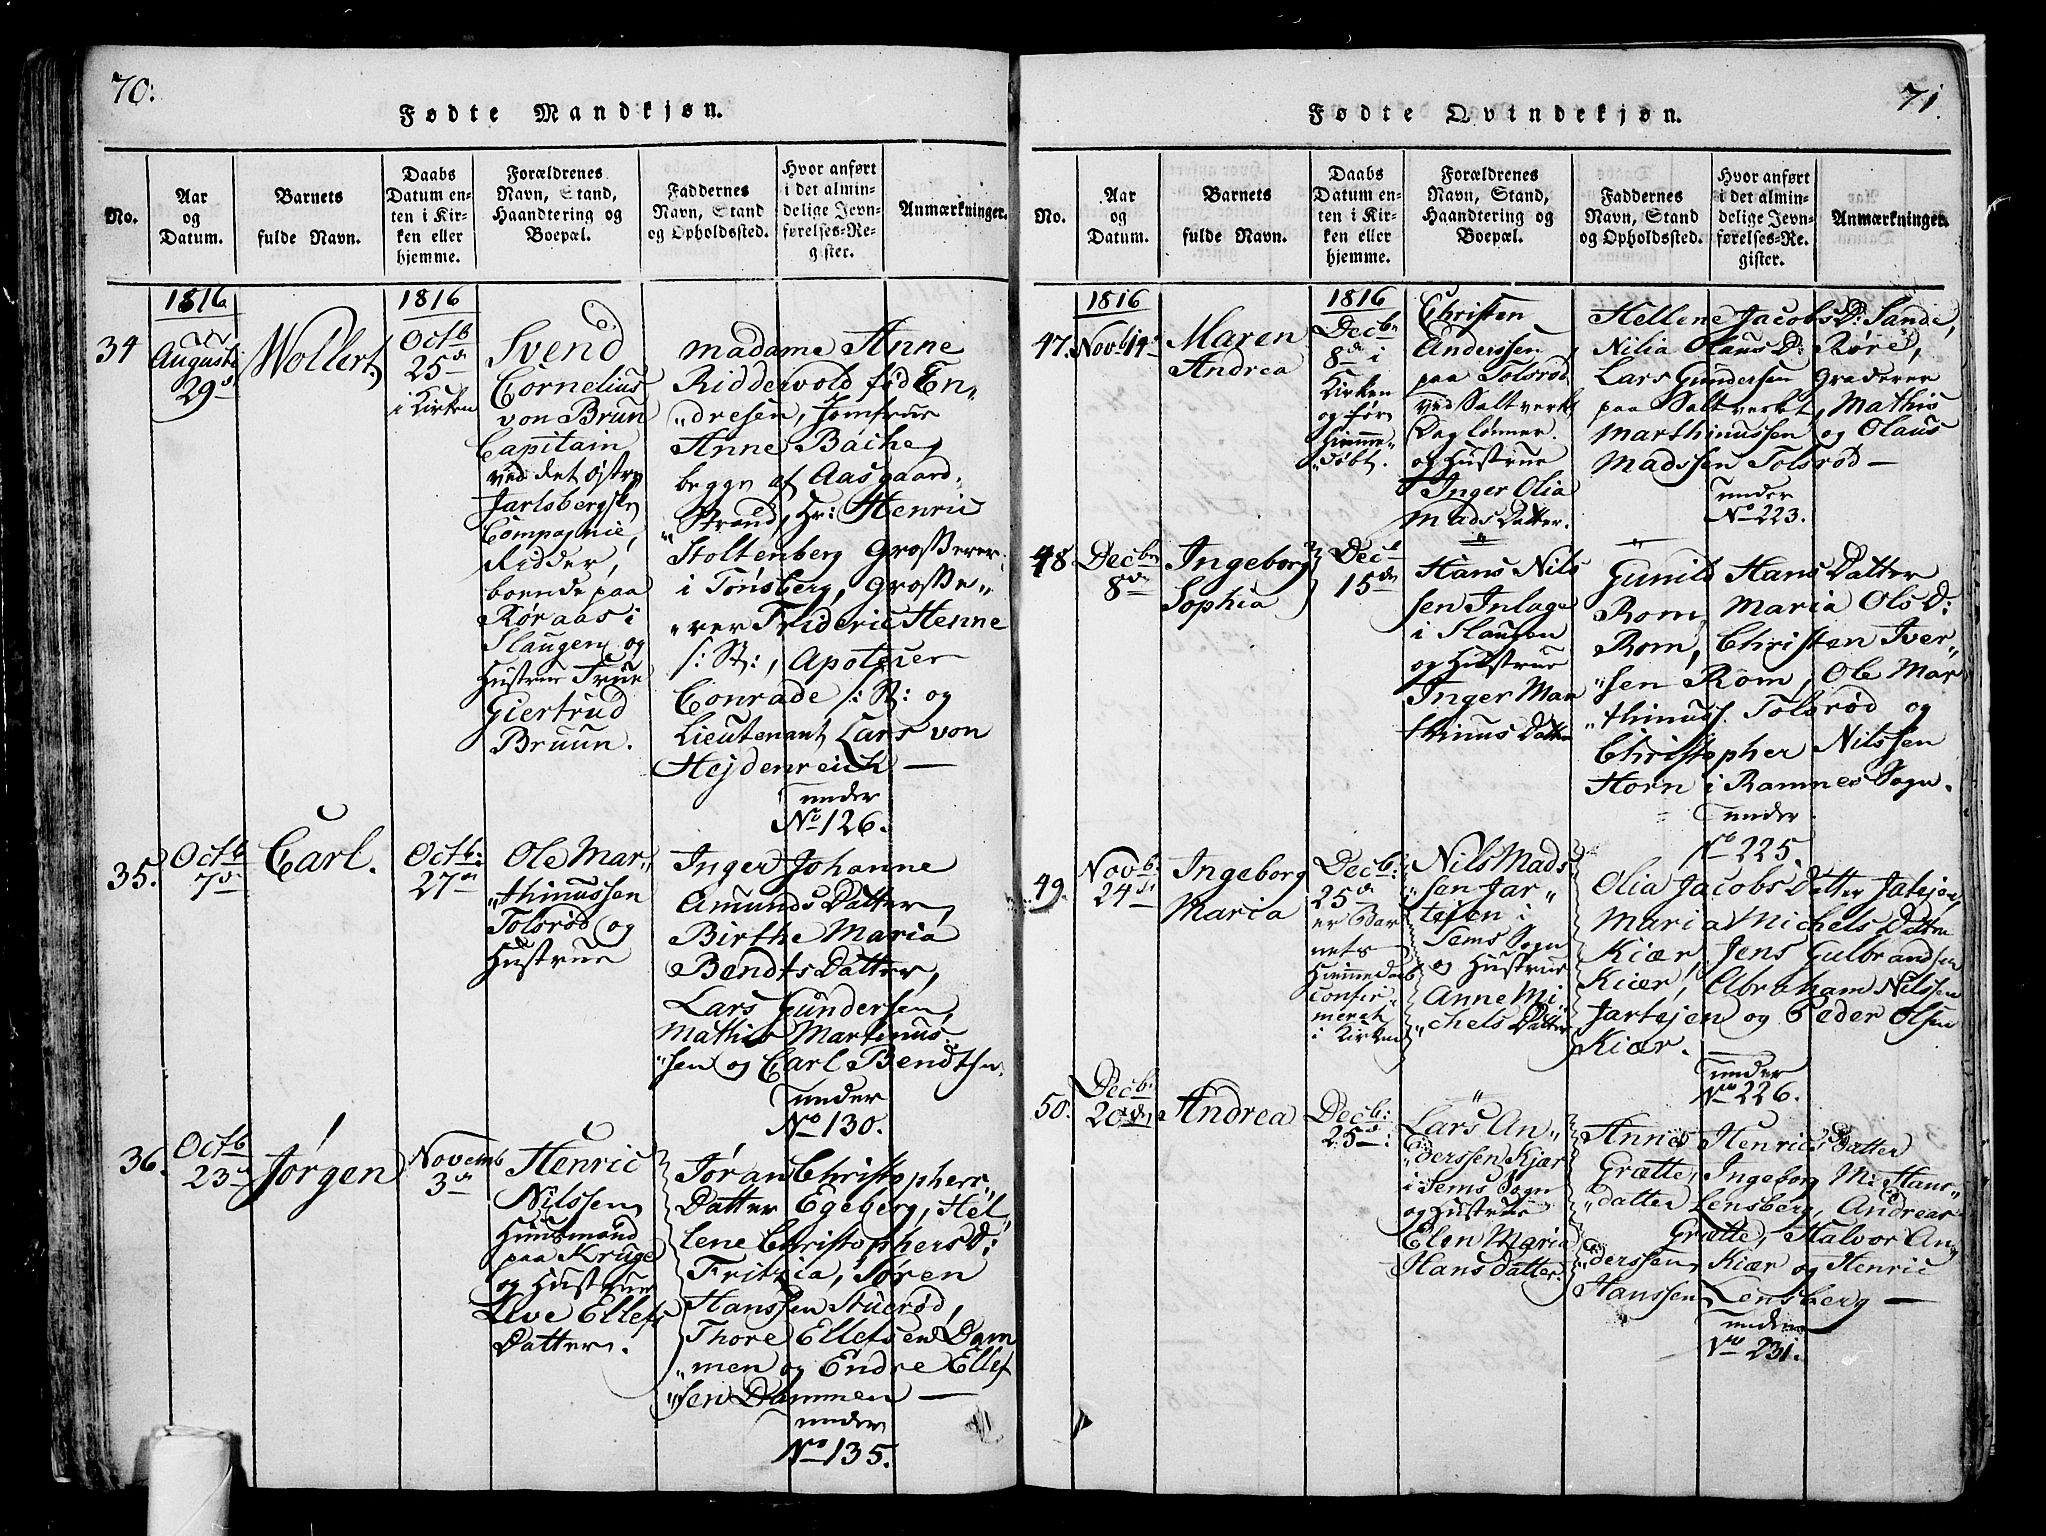 70.
Fødte Mandkjøn.
No.
Aar
og
Datum.
Barnets
fulde Navn.
Daabs
Datum en-
ten i Kir-
ken eller
hjemme.
Forældrenes
Navn, Stand,
Haandtering og
Boepæl.
Faddernes
Navn, Stand
og Opholdssted.
Hvor anført
i det almin-
delige Jevn-
førelses-Re-
gister.
Anmærkninger.
34
1816
Auguste
29d
Wollert
1816
Octb
25d
i Kirken
Svend
Cornelius
von Brun
Capitain
ved det østre
Jarlsbergske
Compagnie,
Ridder,
boende paa
Røraas i
Slaugen og
Hustrue Frue
Giertrud
Bruun.
madame Anne
Riddervold fød En-
"dresen, Jomfrue
Anne Bache,
begge af Aasgaard-
"Strand, Hr: Henric
Stoltenberg Grosserer
i Tønsberg, Grosse-
"rer Frideric Henne
/: St:, Apoteker
Conrade /: St: og
Lieutenant Lars von
Hejdenreich —
under
No 126.
35.
Octb
7de
Carl.
Octb:
27de
Ole Mar-
"thinussen
Tolsrød og
Hustrue
Inger Johanne
Amunds Datter,
Birthe Maria
Bendts Datter,
Lars Gundersen,
Mathis Martinus-
"sen og Carl Bendtsen.
under
No 130.
36.
Octb
23d
Jørgen
Novemb
3de
Henric
Nilssen
Huusmand
paa Kruge
og Hustrue
Live Ellefs
Datter.
Jøran Christophers
Datter Egeberg, Hel-
lene Christophers D:
Fritzia, Søren
Hanssen Stuerød,
Thore Ellefsen Dam
"men og Endre Ellef
"sen Dammen —
under
No 135.
71.
Fødte Qvindekjøn.
No.
Aar
og
Datum.
Barnets
fulde Navn.
Daabs
Datum en-
ten i Kir-
ken eller
hjemme.
Forældrenes
Navn, Stand,
Haandtering og
Boepæl.
Faddernes
Navn, Stand
og Opholdssted.
Hvor anført
i det almin-
delige Jevn-
førelses-Re-
gister.
Anmærkninger.
47.
1816
Novb 14de
Maren
Andrea
1816
Decbr
8de i
Kirken
og før
Hiemme-
"døbt.
Christen
Anderssen
paa Tolsrød
ved Saltverket
Daglønner.
og Hustrue
Inger Olia
Mads Datter.
Hellene Jacobs D: Sande,
Nilia Olaus D: Røre,
Lars Gundersen Graderer
paa Saltverket, Mathis
Marthinussen og Olaus
Madssen Tolsrød —
under
No 223.
48
Decbr
8de
Ingeborg
Sophia
Decb
15de
Hans Nils
sen Inlage
i Slaugen
og Hustrue
Inger Mar
thinus Datter
Gunild Hans Datter
Rom, Maria Ols D:
Rom, Christen Iver-
"sen Rom, Ole Mar
"thinuss. Tolsrød og
Christopher Nilssen
Horn i Ramnes Sogn.
under
No 225.
49.
Novb:
24de
Ingeborg
Maria
Decb:
25de
er Bar
nets
Hiemmedaab
confir-
meret
i Kirken
Nils Mads
"sen Jar-
tejen i
Sems Sogn
og Hustrue
Anne Mi-
"chels Datter
Olia Jacobs Datter Jatejen,
Maria Michels Datter
Kiær, Jens Gulbrandsen
Kiær, Abraham Nilssen
Jartejen og Peder Olsen
Kiær.
under
No 226.
50.
Decb:
20de
Andrea
Decb:
25de:
Lars An-
"derssen Kjær
i Sems Sogn
og Hustrue
Elen Maria
Hans datter.
Anne Henrics Datter
Grætte, Ingeborg M: Hans-
"datter Lensberg, Andreas
Grætte, Halvor An
"derssen Kiær og Henric
Hanssen Lensberg —
under
No 231.